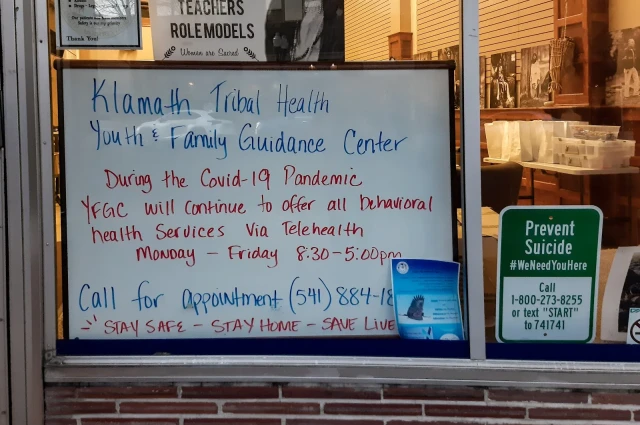 Thank You!
TEACHERS
ROLE MODELS
Women are Sacred
Klamath Tribal Health
Youth & Family Guidance Center
During the Covid-19 Pandemic
YFGC will continue to offer all behavioral
health Services Via Telehealth
Monday - Friday 8:30-5:00pm
Call for appointment (541) 884-18
STAY SAFE - STAY HOME - SAVE LIVE
Prevent
Suicide
#WeNeedYouHere
Call
1-800-273-8255
or text "START"
to 741741